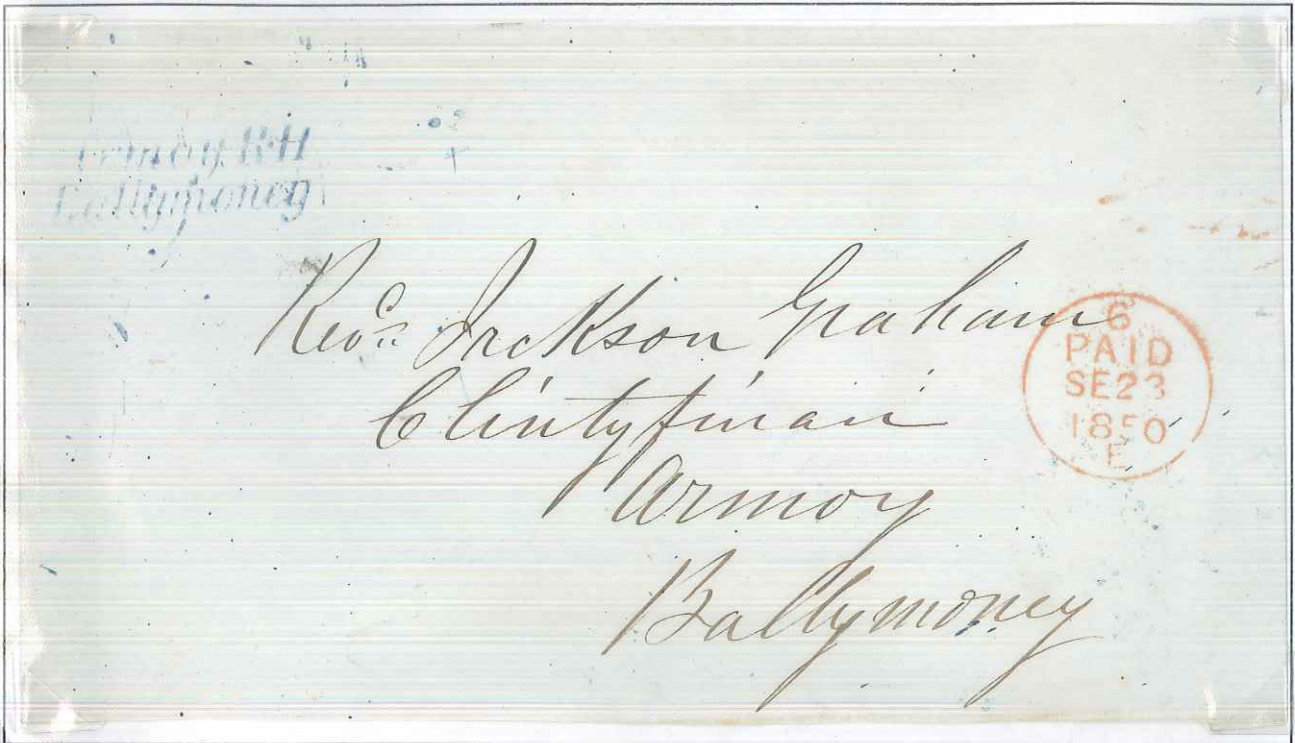 Armoy R·H
Ballymoney
Revd. Jackson Graham
Clintyfinan
Armoy
Ballymoney
6
PAID
SE 23
1850
E